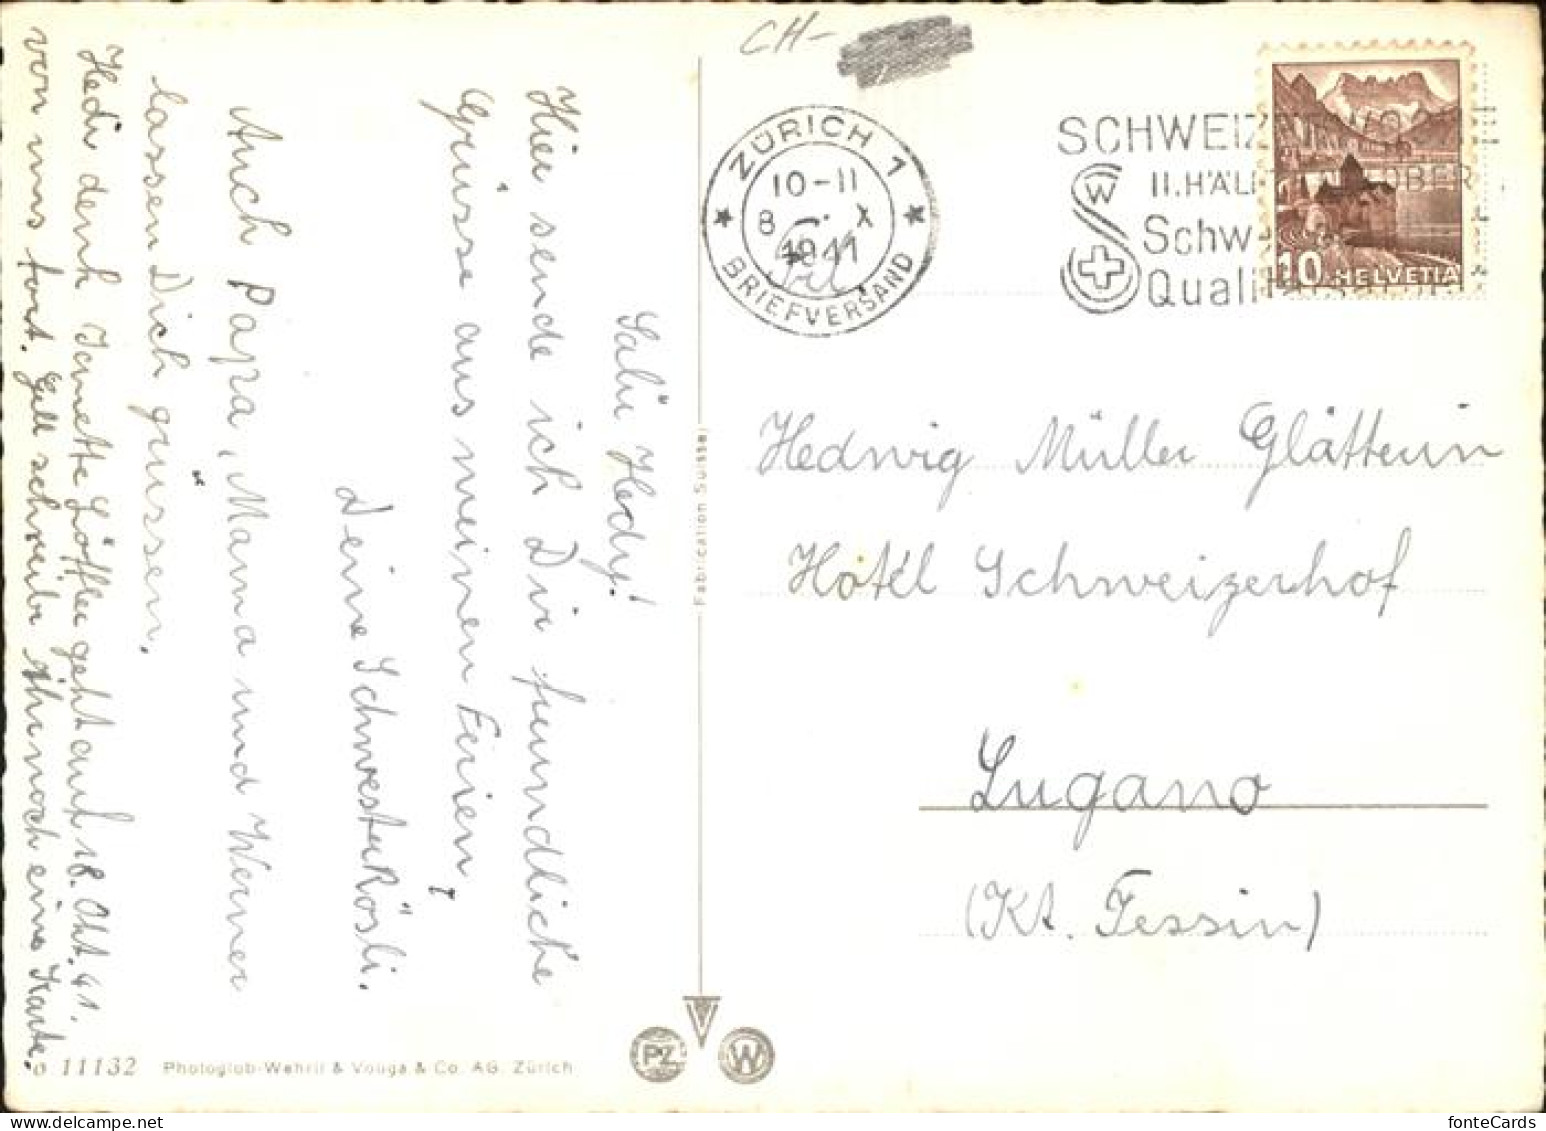 CH-
ZÜRICH 1
10-11
8. X
1941
BRIEFVERSAND
SCHWEIZ
II. HÄL OBER
Schw
Quali
10 HELVETIA
Salü Hedy!
Hier sende ich Dir freundliche
Grüsse aus meinen Ferien,
Deine Schwester Rösli.
Auch Papa, Mama und Werner
lassen Dich grüssen.
Hedi denk Jennette Löffler geht auf 18. Okt. 41.
von uns fort. Gell schreibe ihr noch eine Karte.
Hedwig Müller Glätterin
Hotel Schweizerhof
Lugano
(Kt. Tessin)
Fabrication Suisse
o 11132 Photoglob-Wehrli & Vouga & Co. AG. Zürich
PZ V W
fonteCards